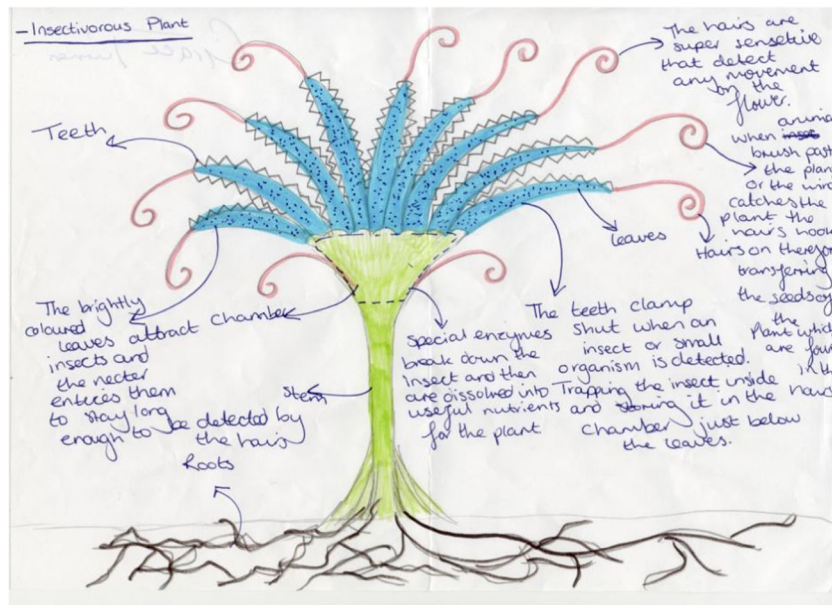 - Insectivorous Plant
The hairs are
super sensetive
that detect
any movement
on the
flower.
when animal
brush past
the plant
or the wind
catches the
plant the
hairs hook
on therefore
transferring
the seeds of
the
Plant which
are
in the
Teeth
leaves
Hairs
The brightly
coloured
leaves attract
insects and
the necter
entices them
to stay long
enough to be detected by
the hairs
chamber
Stem
Roots
Special enzymes
break down the
insect and then
are dissolved into
useful nutrients
for the plant
The teeth clamp
shut when an
insect or small
organism is detected.
Trapping the insect inside
and storing it in the
chamber just below
the leaves.